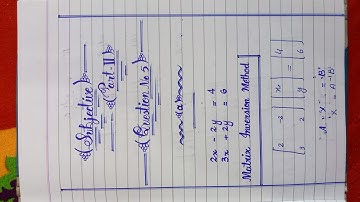 (Subjective)
(Part-II)
(Question No 5)
(a)
2x - 2y = 4
3x + 2y = 6
Matrix Inversion Method
[2 -2] [x] = [4]
[3 2] [y] [6]
A X = B
X = A⁻¹B